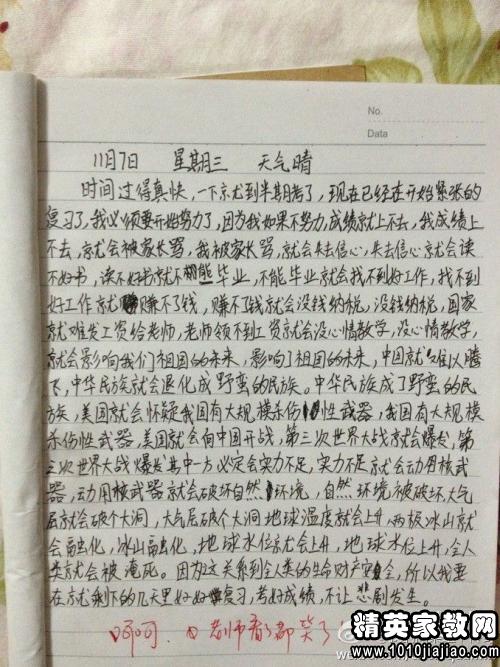 No.
Data
11月7日 星期三 天气晴
时间过得真快,一下就到半期考了,现在已经在开始紧张的
复习了,我必须要开始努力了,因为我如果不努力,成绩就上不去,我成绩上
不去,就会被家长骂,我被家长骂,就会失去信心,失去信心就会读
不好书,读不好书就不能毕业,不能毕业就会找不到好工作,找不到
好工作就赚不了钱,赚不了钱就会没钱纳税,没钱纳税,国家
就难发工资给老师,老师领不到工资就会没心情教学,没心情教学,
就会影响我们祖国的未来,影响了祖国的未来,中国就难以腾
飞,中华民族就会退化成野蛮的民族。中华民族成了野蛮的民
族,美国就会怀疑我国有大规模杀伤性武器,我国有大规模
杀伤性武器,美国就会向中国开战,第三次世界大战就会爆发,第
三次世界大战爆发其中一方必定会实力不足,实力不足就会动用核武
器,动用核武器就会破坏自然环境,自然环境被破坏,大气
层就会破个大洞,大气层破个大洞地球温度就会上升,两极冰山就
会融化,冰山融化,地球水位就会上升,地球水位上升,全人
类就会被淹死。因为这关系到全人类的生命财产安全,所以我要
在就剩下的几天里好好复习,考好成绩,不让悲剧发生。
呵呵,老师看了都笑了
精英家教网
www.1010jiajiao.com